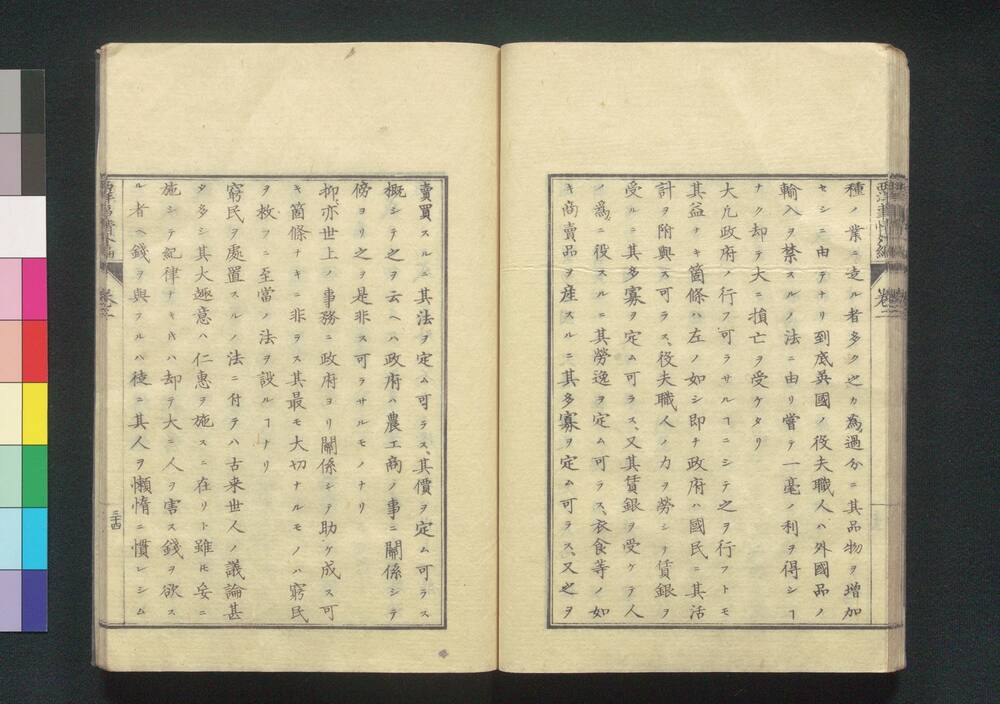 西洋事情外編
巻三
種ノ業ニ走ル者多クシカ為過分ニ其品物ヲ増加
セシニ由テナリ到底異國ノ役夫職人ハ外國品ノ
輸入ヲ禁スルノ法ニ由リ嘗テ一毫ノ利ヲ得シヿ
ナク却テ大ニ損亡ヲ受ケタリ
大凡政府ノ行フ可ラサルヿニシテ之ヲ行フトモ
其益ナキ箇條ハ左ノ如シ即チ政府ハ國民ニ其活
計ヲ附與ス可ラス、役夫職人ノ力ヲ勞シテ賃銀ヲ
受ルニ其多寡ヲ定ム可ラス、又其賃銀ヲ受ケテ人
ノ為ニ役スルニ其勞逸ヲ定ム可ラス、衣食等ノ如
キ商賣品ヲ産スルニ其多寡ヲ定ム可ラス、又之ヲ
賣買スルニ其法ヲ定ム可ラス、其價ヲ定ム可ラス
概シテ之ヲ云ヘハ政府ハ農工商ノ事ニ關係シテ
傍ヨリ之ヲ是非ス可ラサルモノナリ
抑亦世上ノ事務ニ政府ヨリ關係シテ助ケ成ス可
キ箇條ナキニ非ラス其最モ大切ナルモノハ窮民
ヲ救フニ至當ノ法ヲ設ルヿナリ
窮民ヲ處置スルノ法ニ付テハ古来世人ノ議論甚
タ多シ其大趣意ハ仁惠ヲ施スニ在リト雖𪜈妄ニ
施シテ紀律ナキ𪜈ハ却テ大ニ人ヲ害ス錢ヲ欲ス
ル者ヘ錢ヲ與フルハ徒ニ其人ヲ懶惰ニ慣レシム
西洋事情外編
巻三
三十四